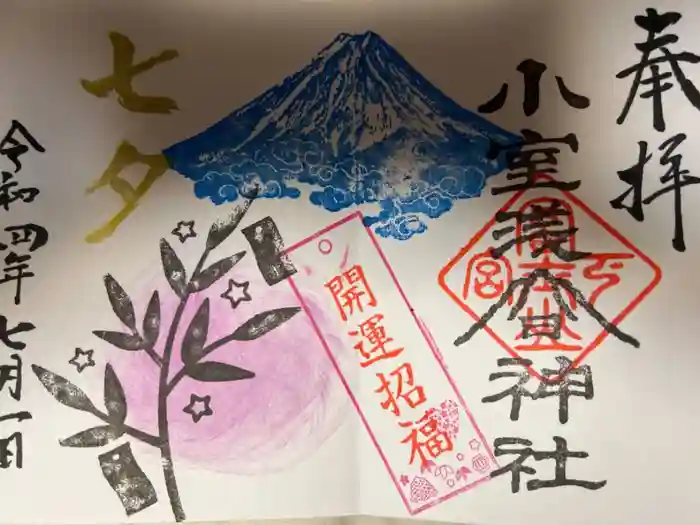 奉拝
小室浅間神社
開運招福
七夕
令和四年七月一日